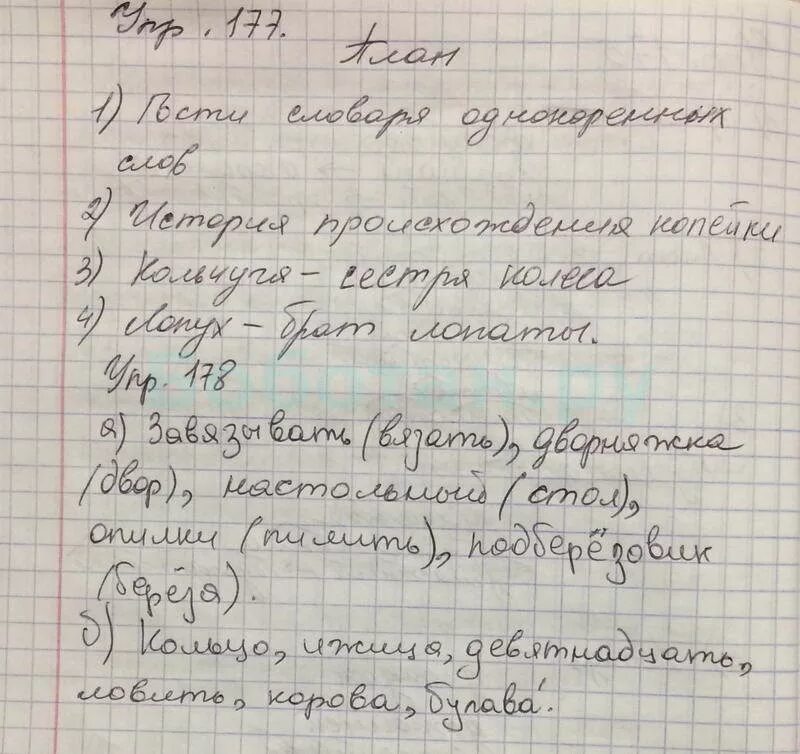 Упр. 177.
План
1) Гости словаря однокоренных
слов
2) История происхождения копейки
3) Кольчуга – сестра колеса
4) Лопух – брат лопаты.
Упр. 178
а) Завязывать (вязать), дворняжка
(двор), настольный (стол),
опилки (пилить), подберёзовик
(берёза).
б) Кольцо, ижица, девятнадцать,
ловить, корова, булава.